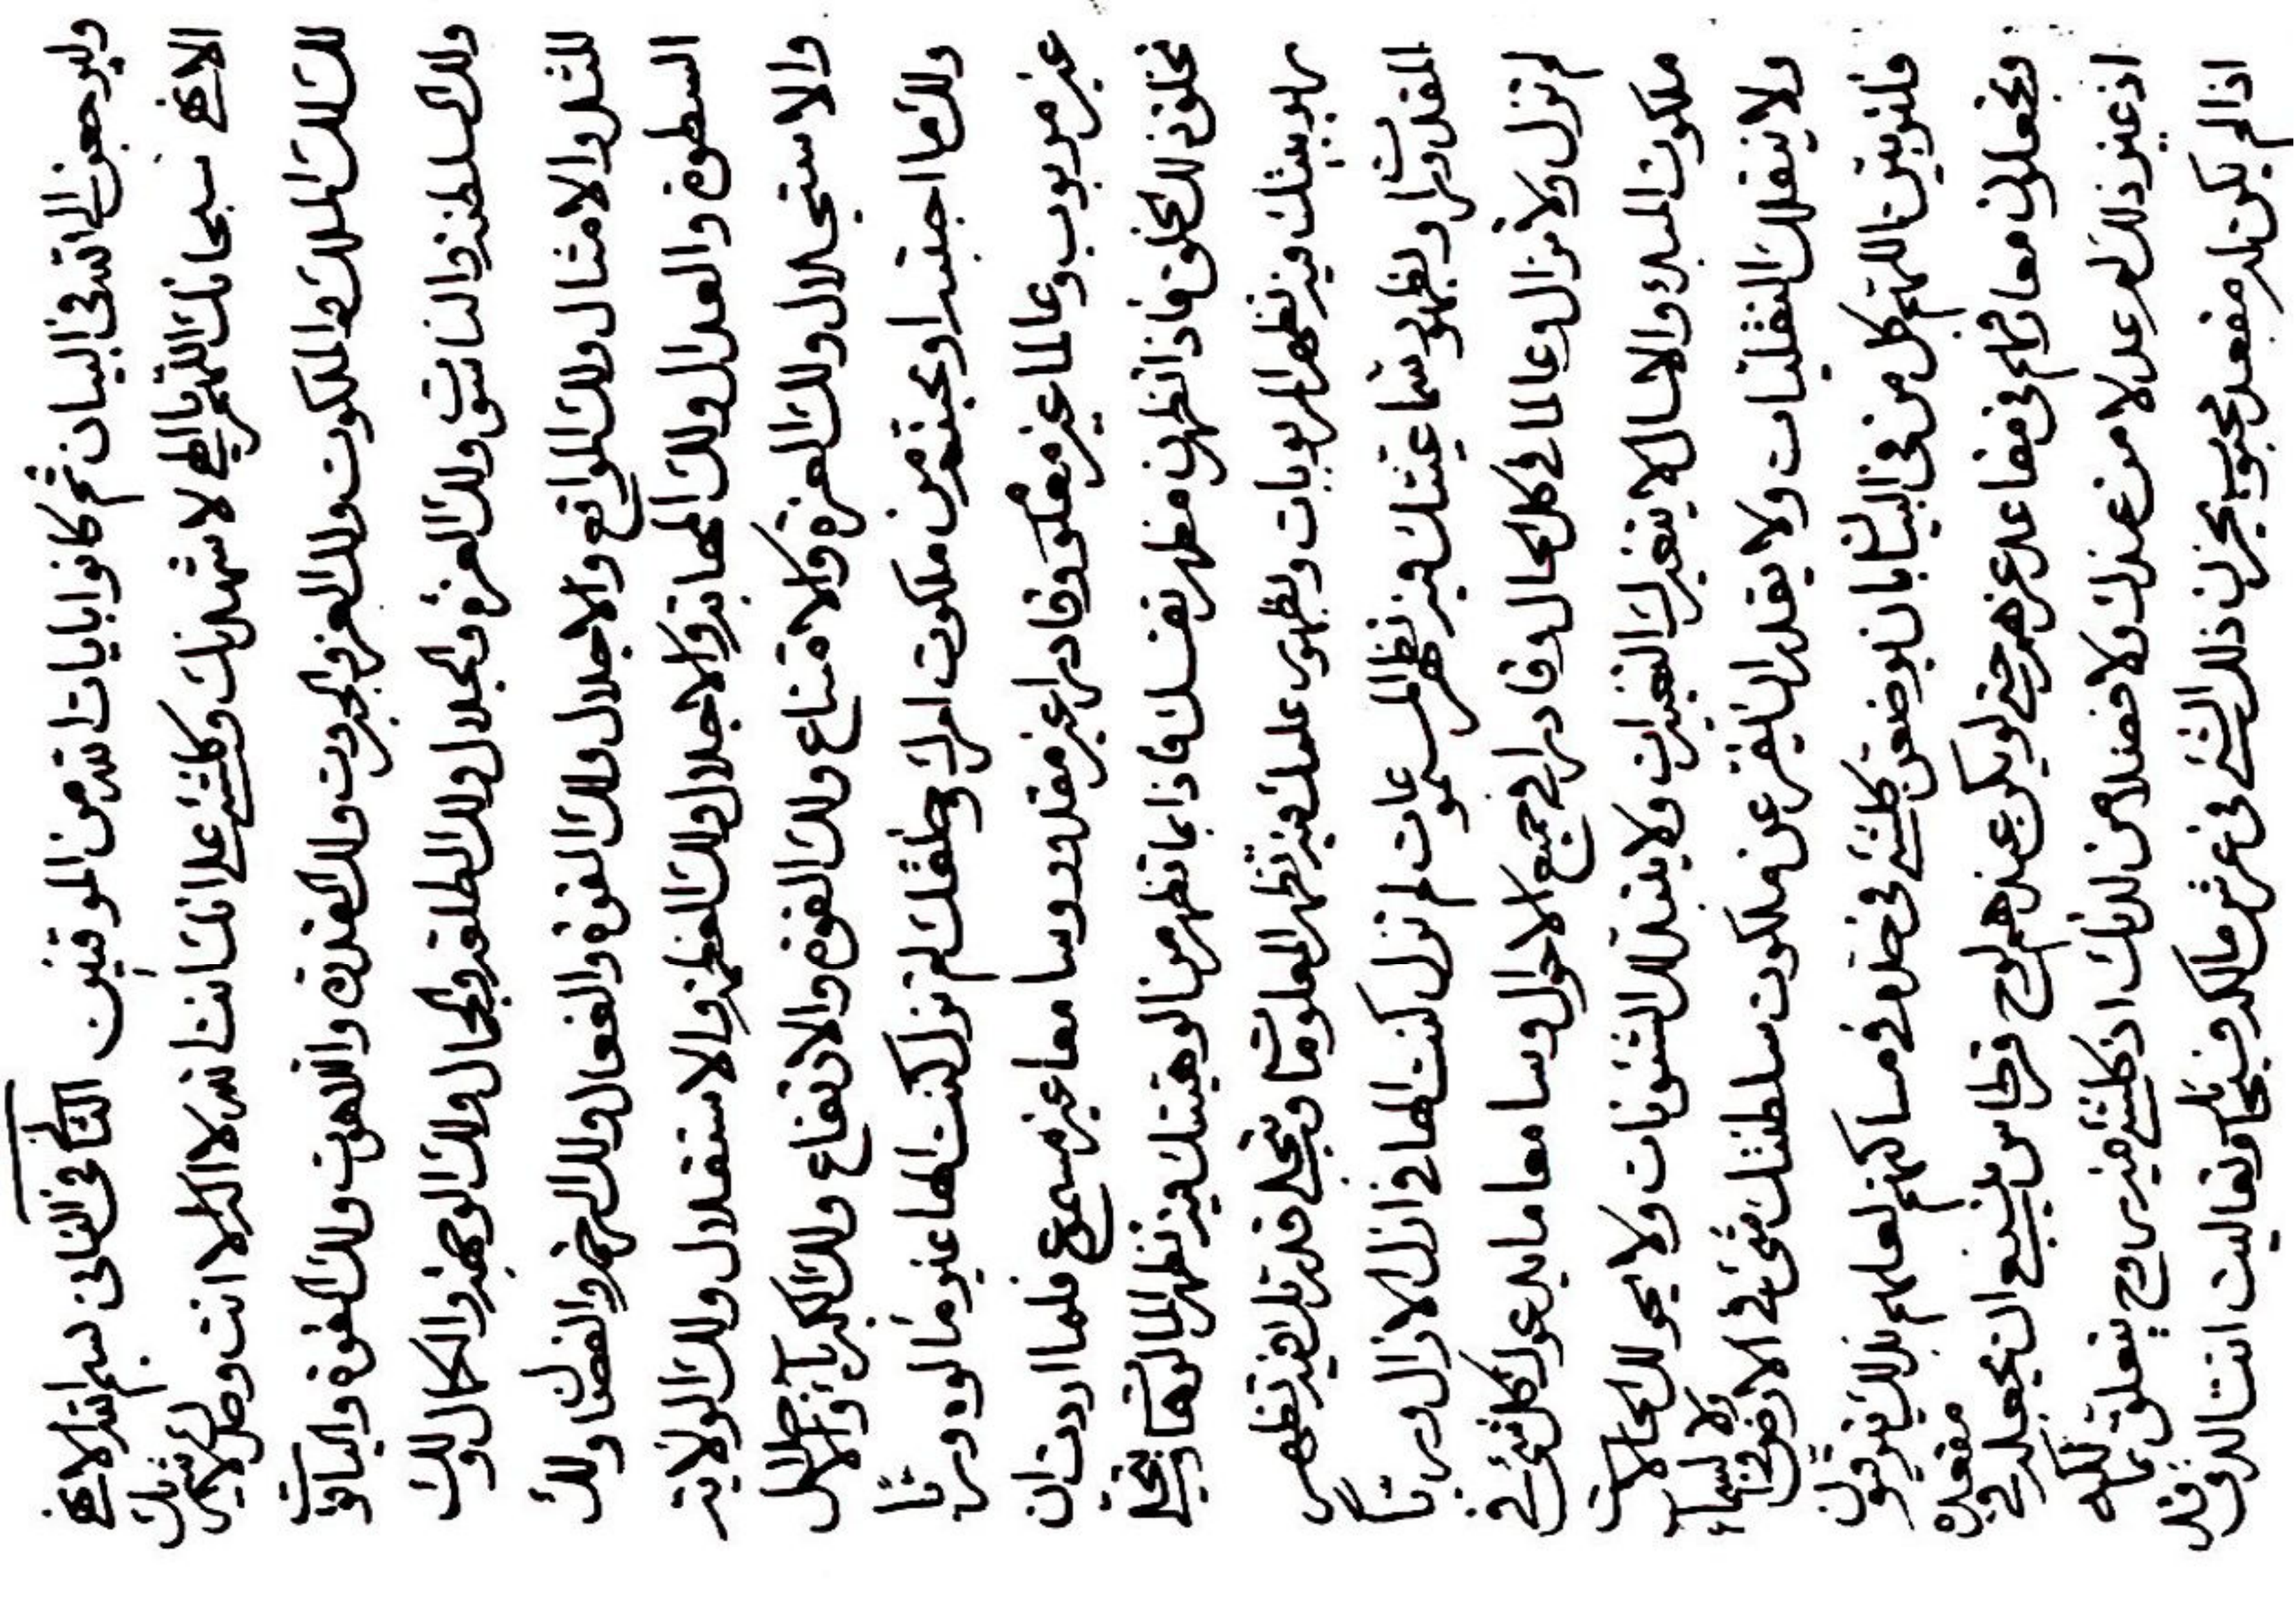 وليرجعن الى الله فى البيان ثم كانوا بايات الله من الموقنين الثانى فى الثانى بسم الله الابهى
الابهى سبحانك اللهم يا الهى لاشهدنك وكلشئ على انك انت الله لا اله الا انت وحدك لا شريك
لك لك الملك والملكوت ولك العز والجبروت ولك القدرة واللاهوت ولك القوة والياقوت
ولك السلطنة والناسوت ولك العزة والجلال ولك الطلعة والجمال ولك الوجهة والكمال ولك
المثل والامثال ولك المواقع والاجلال ولك القوة والفعال ولك الرحمة والفضال ولك
السطوة والعدال ولك المهابة والاجلال ولك العظمة والاستقلال ولك الولاية
والاستجلال ولك العزة والامتناع ولك القوة والارتفاع ولك الكبرياء
ولك ما احببته او تحبنه من ملكوت امرك وخلقك لم تزل كنت الها غير مالوه وربا
غير مربوب وعالما غير معلوم وقادرا غير مقدور وسامعا غير مسموع فلما اردت ان
تخلق ذلك الخلق فاذا تظهرن مظهر نفسك فاذا بما تظهر من الوهيتك فيه تظهر المالوهات وبتجلى
ربوبيتك فيه تظهر المربوبات وبظهور علمك فيه تظهر المعلومات وبتجلى قدرتك فيه تظهر
المقدورات وبظهور سماعيتك فيه تظهر المسموعات لم تزل كنت الها فى ازل الازال وربا
لم تزل ولا تزال وعالما فى كل الحال وقادرا فى جميع الاحوال وسامعا ما يدعوك كل شئ فى
ملكوت المبدء لا يتغيرك التغيرات ولا يبدلك الشئونات ولا يحولك الحالات
ولا ينقلك النقليات ولا يقدر ان يفر عن ملكوت سلطنتك شئ فى الارض ولا السماء
فلتوفقن اللهم كل من فى البيان بان يوضعن كلشئ فى حده فى مساكنهم لعلهم بذلك
ويجعلون فى مقاعد عزهم حتى لو يكن عندهم لوح قرطاس ينبغى ان يجعل له مقعد
اذ غير ذلك عدلا من عندك ولا فضلا من لدنك اذ كلشئ فيه روح يتعلق
اذا لم يكن له مقعد محبوب يحزن ذلك الشئ فى عرش مالكه فسبحانك وتعاليت انت الذى قد